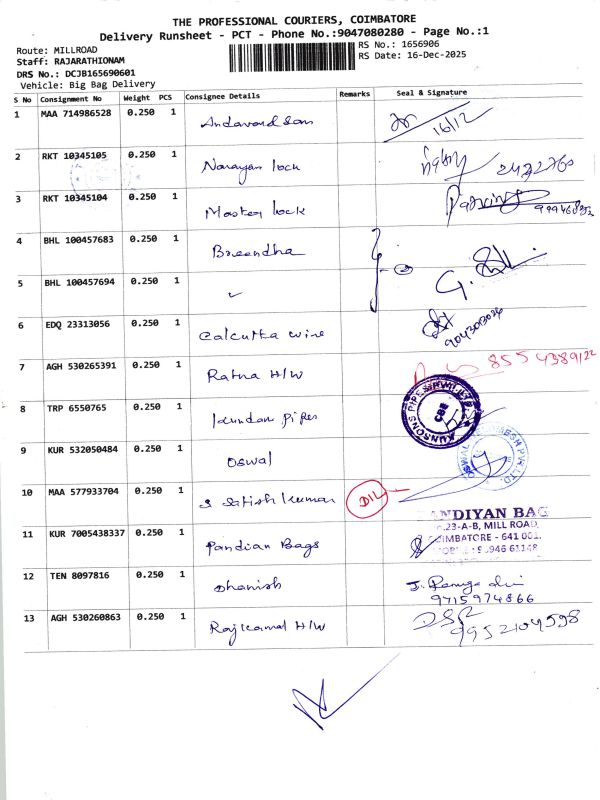 THE PROFESSIONAL COURIERS, COIMBATORE
Delivery Runsheet - PCT - Phone No.:9047080280 - Page No.:1
Route: MILLROAD
RS No.: 1656906
Staff: RAJARATHIONAM
RS Date: 16-Dec-2025
DRS No.: DCJB165690601
Vehicle: Big Bag Delivery
S No Consignment No Weight PCS Consignee Details Remarks Seal & Signature
1 MAA 714986528 0.250 1 16/12
2 RKT 10345105 0.250 1 Narayan lock
3 RKT 10345104 0.250 1 Master lock
4 BHL 100457683 0.250 1 Breendha
5 BHL 100457694 0.250 1
6 EDQ 23313056 0.250 1 Calcutta wire
7 AGH 530265391 0.250 1 Ratna H/W
8 TRP 6550765 0.250 1 kundan pipes CBE
9 KUR 532050484 0.250 1 Oswal
10 MAA 577933704 0.250 1 S Satish kumar
ANDIYAN BAG
23-A-B, MILL ROAD,
OIMBATORE - 641 001.
11 KUR 7005438337 0.250 1 Pandian Bags
12 TEN 8097816 0.250 1 Dhanish 9715974866
13 AGH 530260863 0.250 1 Rajkamal H/W 9952104598